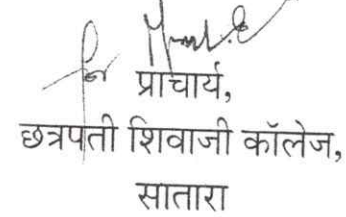 for
प्राचार्य,
छत्रपती शिवाजी कॉलेज,
सातारा